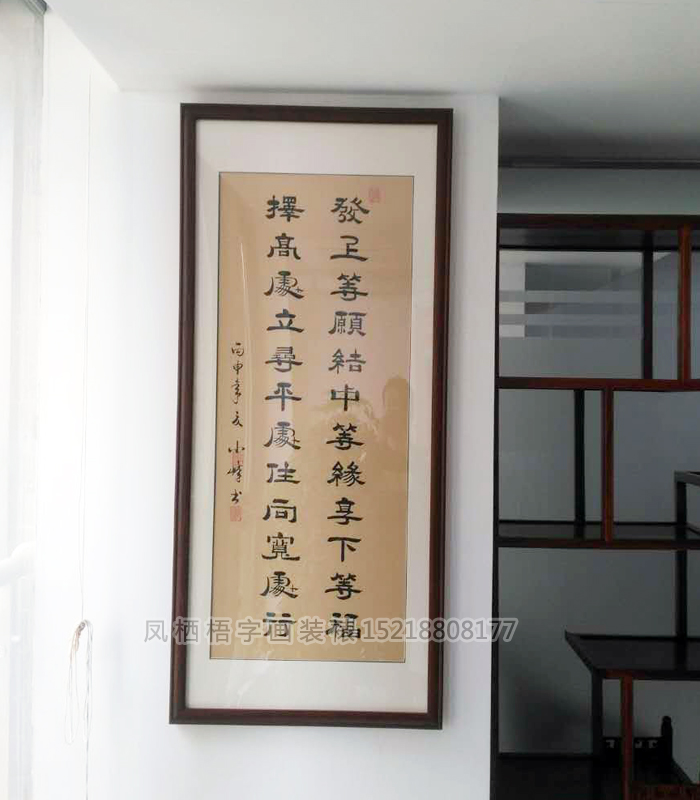 發上等願結中等緣享下等福
擇高處立尋平處住向寬處行
丙申 小 书
凤栖梧字画装裱15218808177